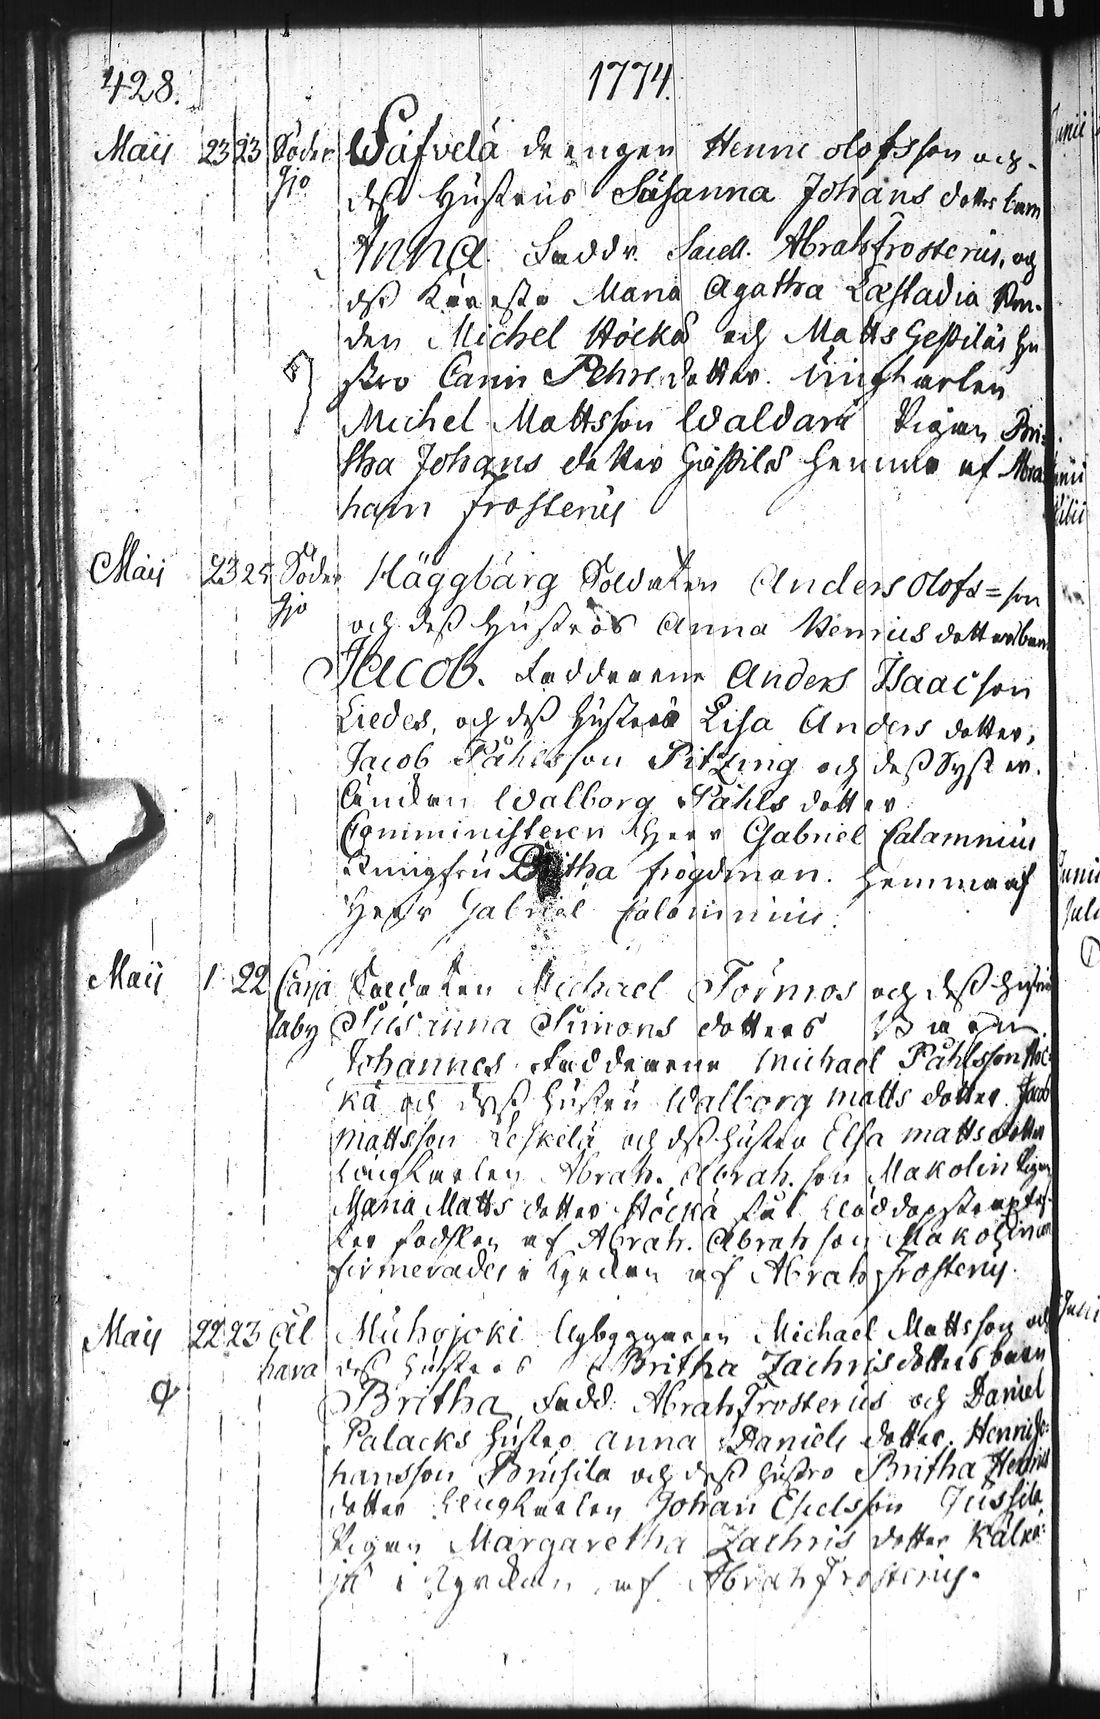 428. 1774.
Maij 23 23 Söder Wäfvelä drengen Henric Olofsson och
Sjö dess Hustrus Susanna Johans dotters barn
Anna. Faddr. Sacell. Abrah Frosterus, och
dess Käresta Maria Agatha Læstadia
den Michel Höckä och Matts hu
stro Carin Pehrs dotter. Ungkarlen
Michel Mattsson Waldari Pigan Bri-
tha Johans dotter hemma af Abra
ham Frosterus
Maij 23 25 Söder Häggbärg Soldaten Anders Olofs=son
Sjö och dess Hustrus Anna Henrics dotters barn
Jacob. Fadderne Anders Isaacson
Liedes, och dess hustru Lisa Anders dotter,
Jacob Påhlsson Pitzing och dess Syster.
Enckan Walborg Påhls dotter
Comministeren Herr Gabriel Calamnius
Jungfru Britha Frögdman. hemma af
Herr Gabriel Calamnius.
Maij 1 22 Carja Soldaten Michael Törmos och dess hustru
laby Susanna Simons dotters Barn
Johannes Fadderne Michael Påhlsson Höc-
kä och dess hustru Walborg Matts dotter Jacob
Mattsson Leskelä och dess hustro Elsa Matts dotter
Ungkarlen Abrah. Abrah. son Makolin Pigan
Maria Matts dotter Höckä får Nöddopet strax ef-
ter födslen af Abrah. Abrah son Makolin
firmerades i Kyrckan af Abrah Frosterus.
Maij 22 23 Al Muhojoki Nybyggaren Michael Mattsson och
hava dess hustrus Britha Zachrisdotters barn
Britha Fadd. Abrah Frosterus och Daniel
Palacks hustro Anna Daniels dotter. Henric Jo-
hansson Brusila och dess hustro Britha Henrics
dotter Ungkarlen Johan Eskelsson Jussila,
Pigan Margaretha Zachris dotter
i Kyrckan af Abrah Frosterus.